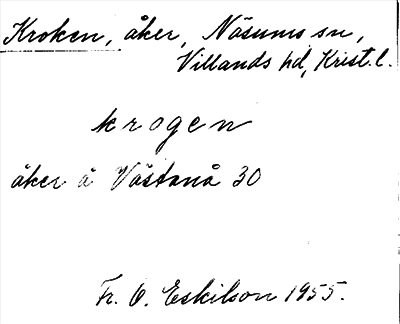 Kroken, åker, Näsums sn,
Villands hd, Krist. l.
krogen
åker å Västanå 30
Fr. O. Eskilson 1955.